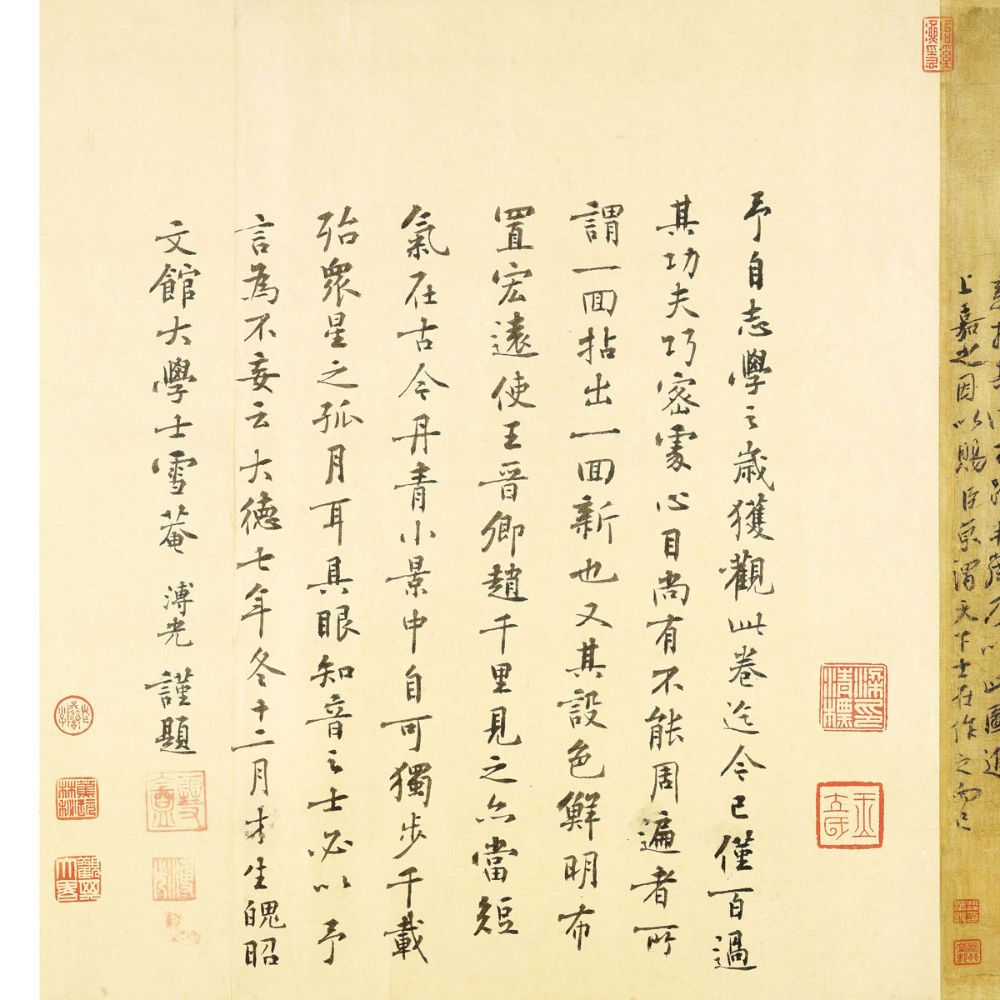 上嘉之因以賜臣京謂天下士在作之而已
予自志學之歲獲觀此卷迄今已僅百過
其功夫巧密處心目尚有不能周遍者所
謂一回拈出一回新也又其設色鮮明布
置宏遠使王晉卿趙千里見之亦當短
氣在古今丹青小景中自可獨步千載
殆眾星之孤月耳具眼知音之士必以予
言為不妄云大德七年冬十二月才生魄昭
文館大學士雪菴溥光謹題